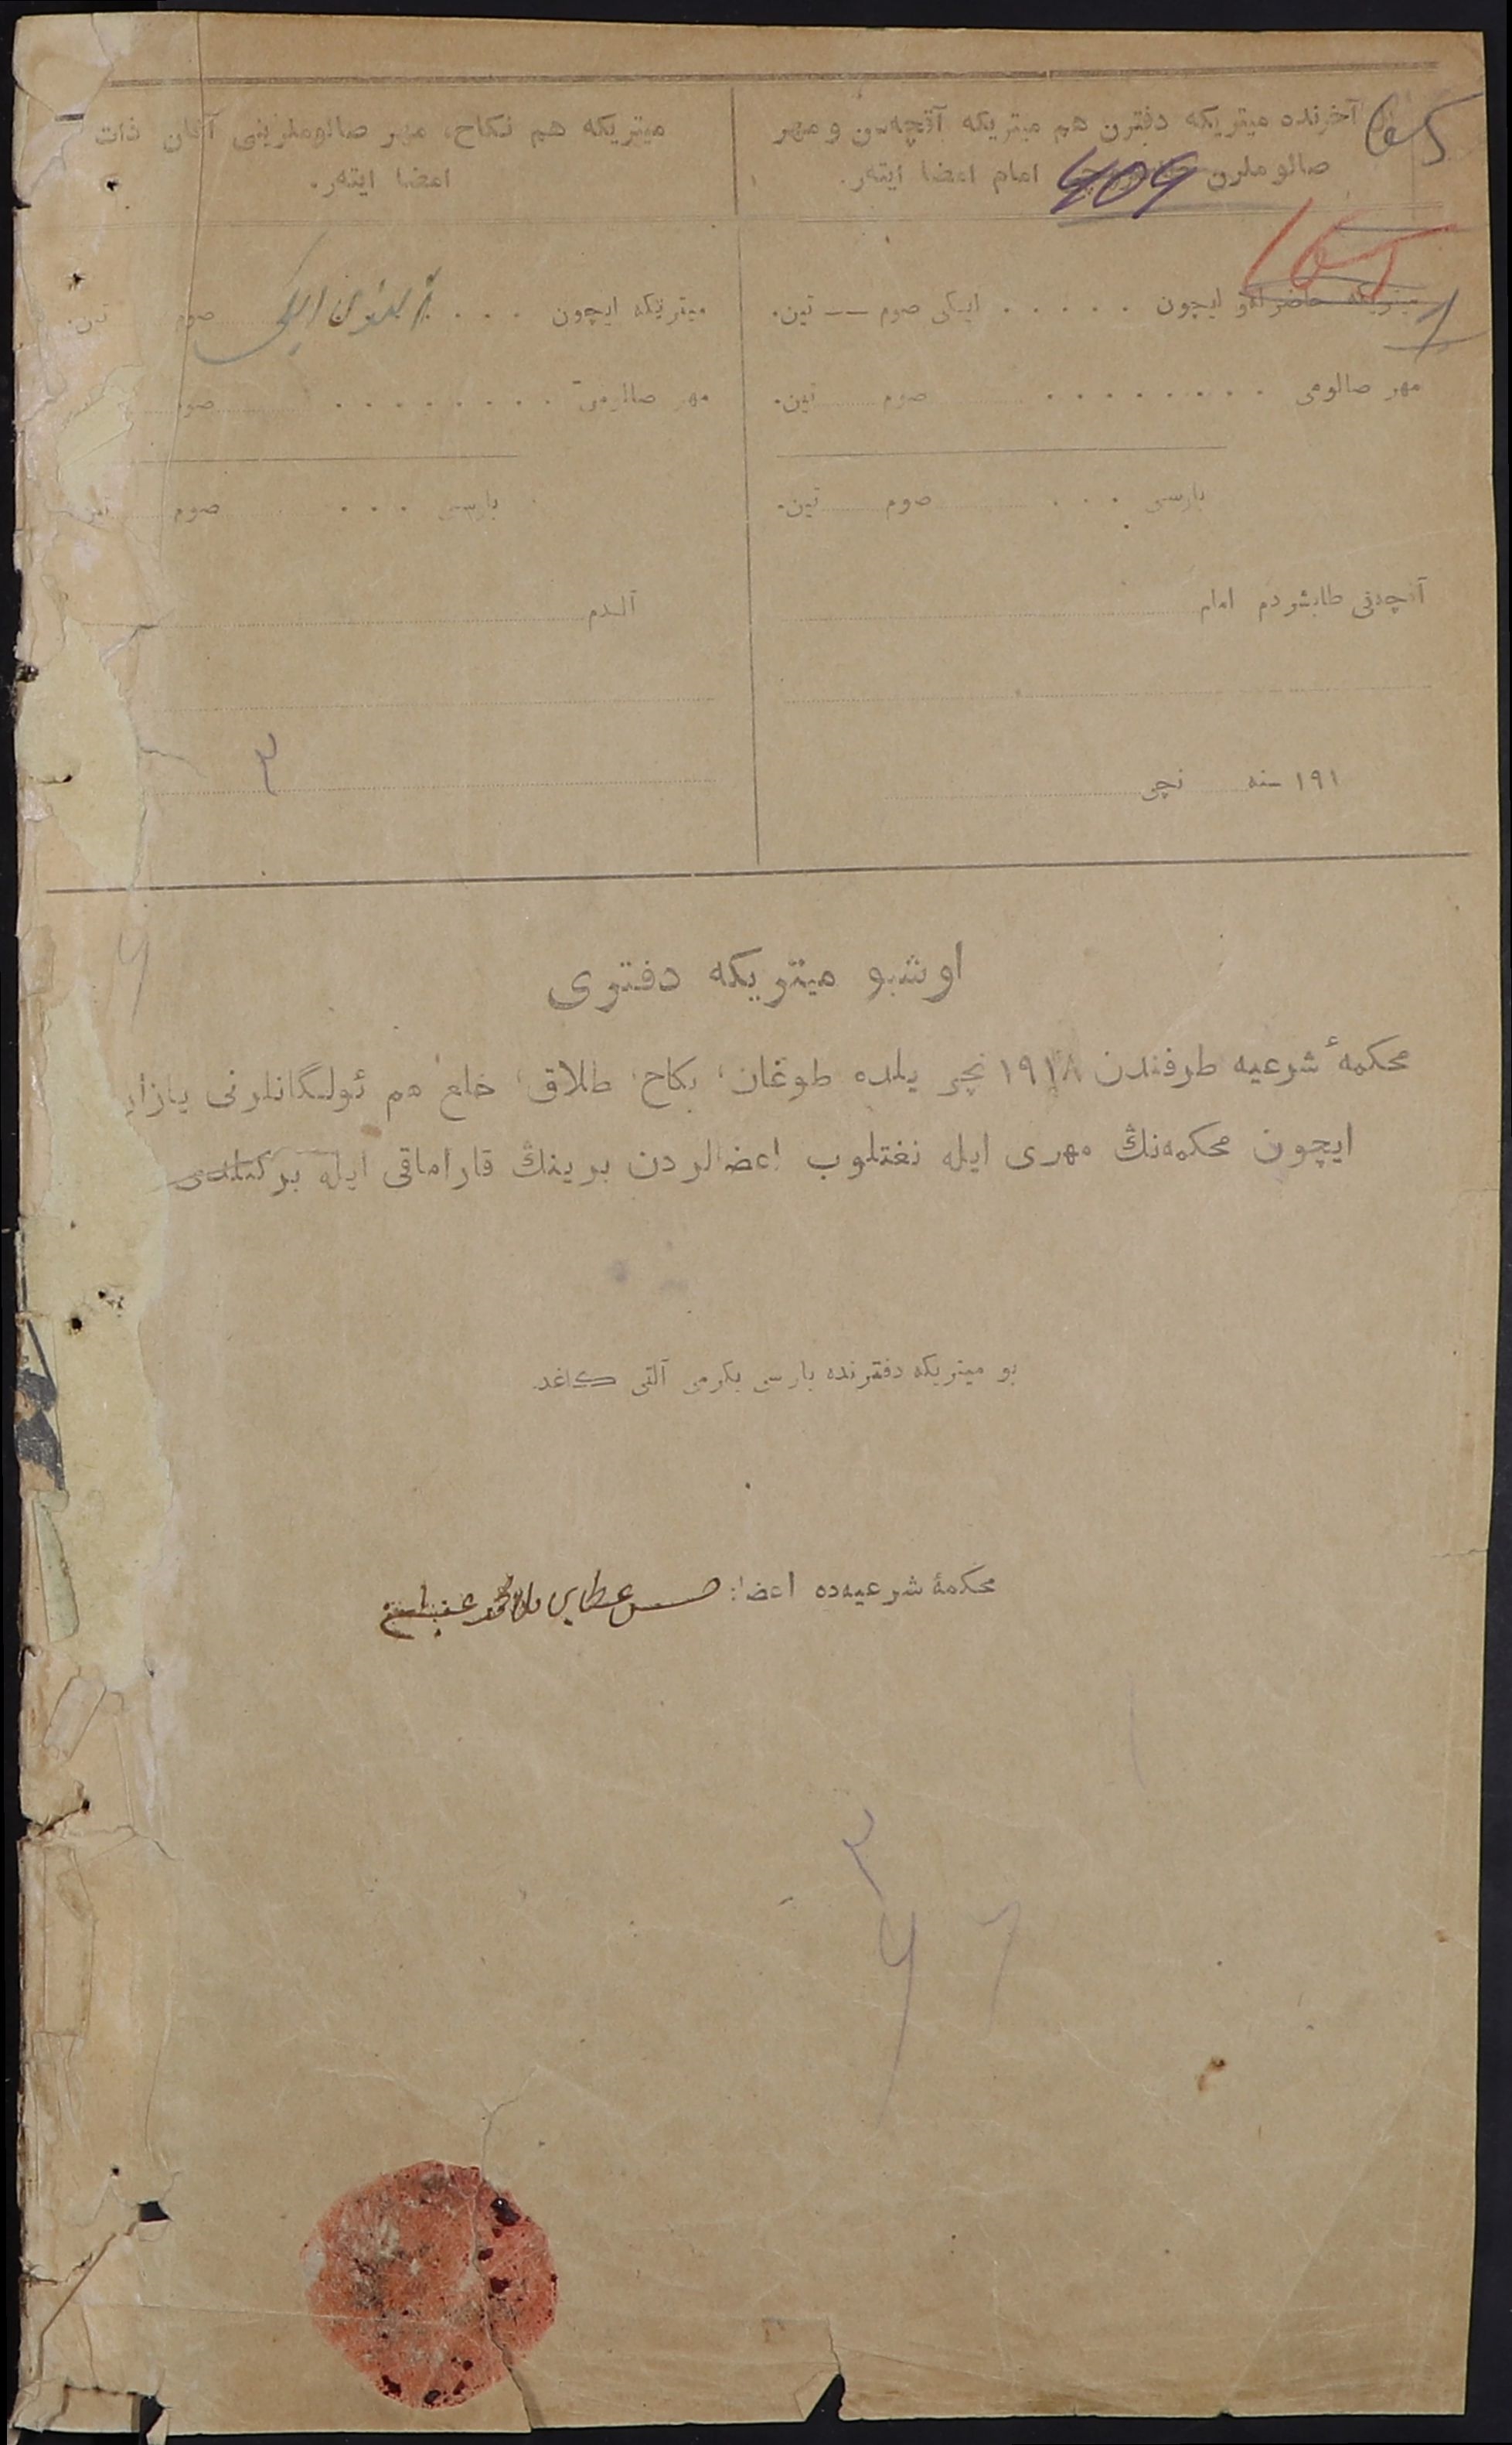 آخرنده میتریکه دفترن هم میتریکه آقچه‌سن و مهر
صالوملرن امام امضا ایته‌ر.
409
165
1
میتریکه حاضرله‌و ایچون . . . . . ایکی صوم —— تین.
مهر صالومی . . . . . . . . صوم تین.
بارسی . . . صوم تین.
آقچه‌نی طابشردم امام
۱۹۱ سنه نچی
میتریکه هم نکاح، مهر صالوملرینی آلغان ذات
امضا ایته‌ر.
میتریکه ایچون . . . صوم تین.
مهر صالومی . . . . . . . . صوم
بارسی . . . صوم تین
آلدم
اوشبو میتریکه دفتری
محکمهٔ شرعیه طرفندن ۱۹۱۸ نچی یلده طوغان، نکاح، طلاق، خلع هم ئولگانلرنی یازار
ایچون محکمه‌نڭ مهری ایله نغتلوب اعضالردن برینڭ قاراماقی ایله برکتلدی
بو میتریکه دفترنده بارسی یکرمی آلتی کاغد.
محکمهٔ شرعیه‌ده اعضا: